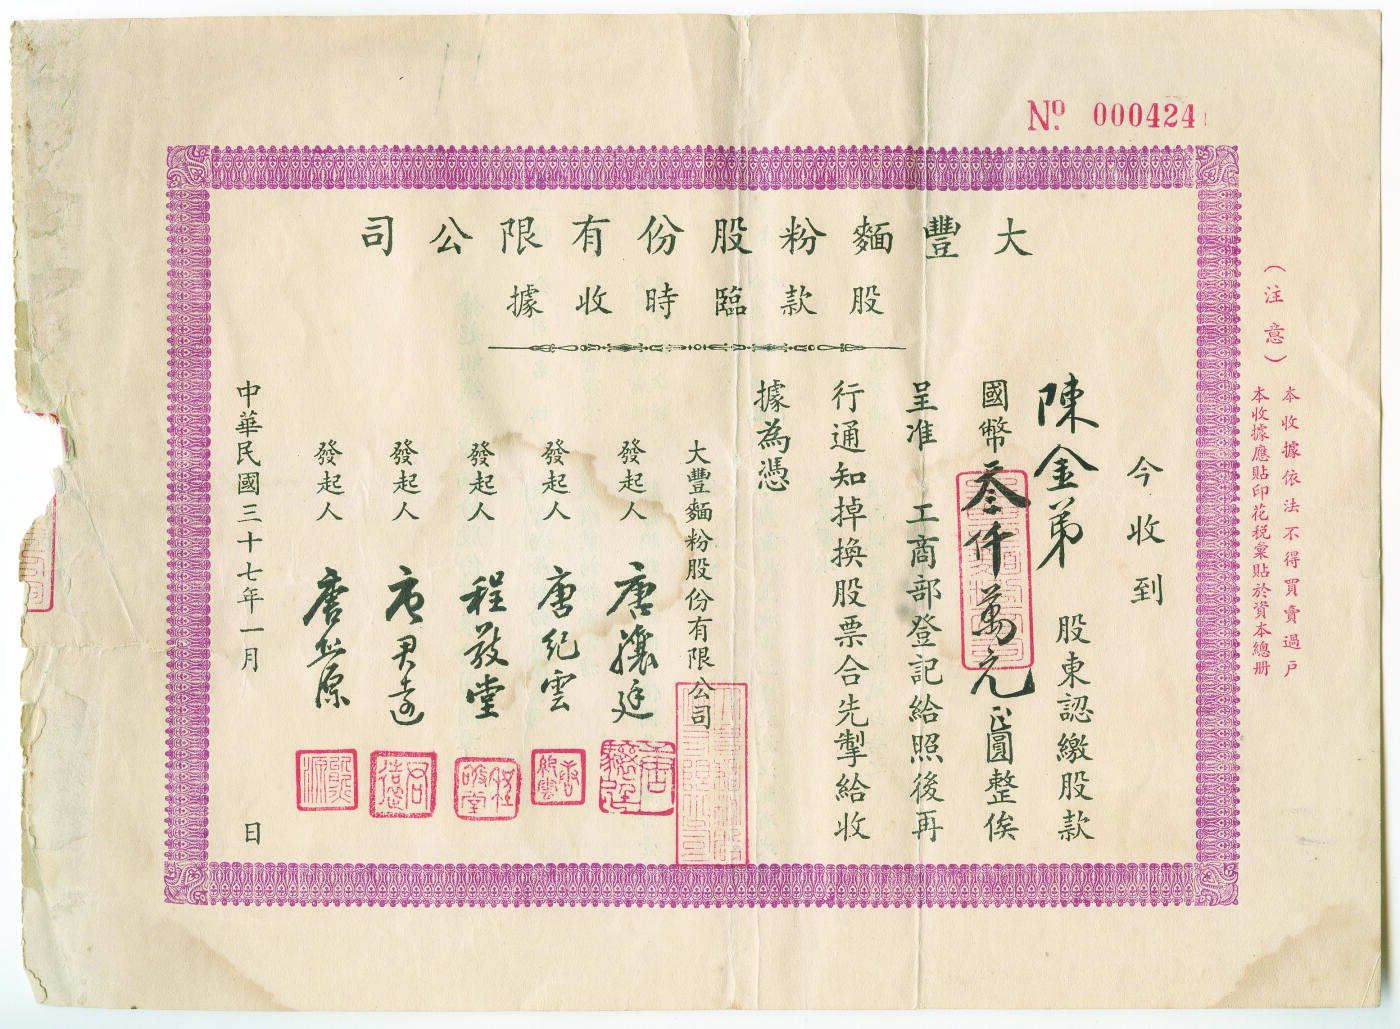 No. 000424
大豐麵粉股份有限公司
股款臨時收據
今收到
陳金弟 股東認繳股款
國幣叁仟萬元圓整俟
呈准 工商部登記給照後再
行通知掉換股票合先掣給收
據為憑
大豐麵粉股份有限公司
發起人 唐驤廷
發起人 唐紀雲
發起人 程敬堂
發起人 唐君遠
發起人 唐熊源
中華民國三十七年一月 日
(注意)
本收據依法不得買賣過戶
本收據應貼印花稅彙貼於資本總册